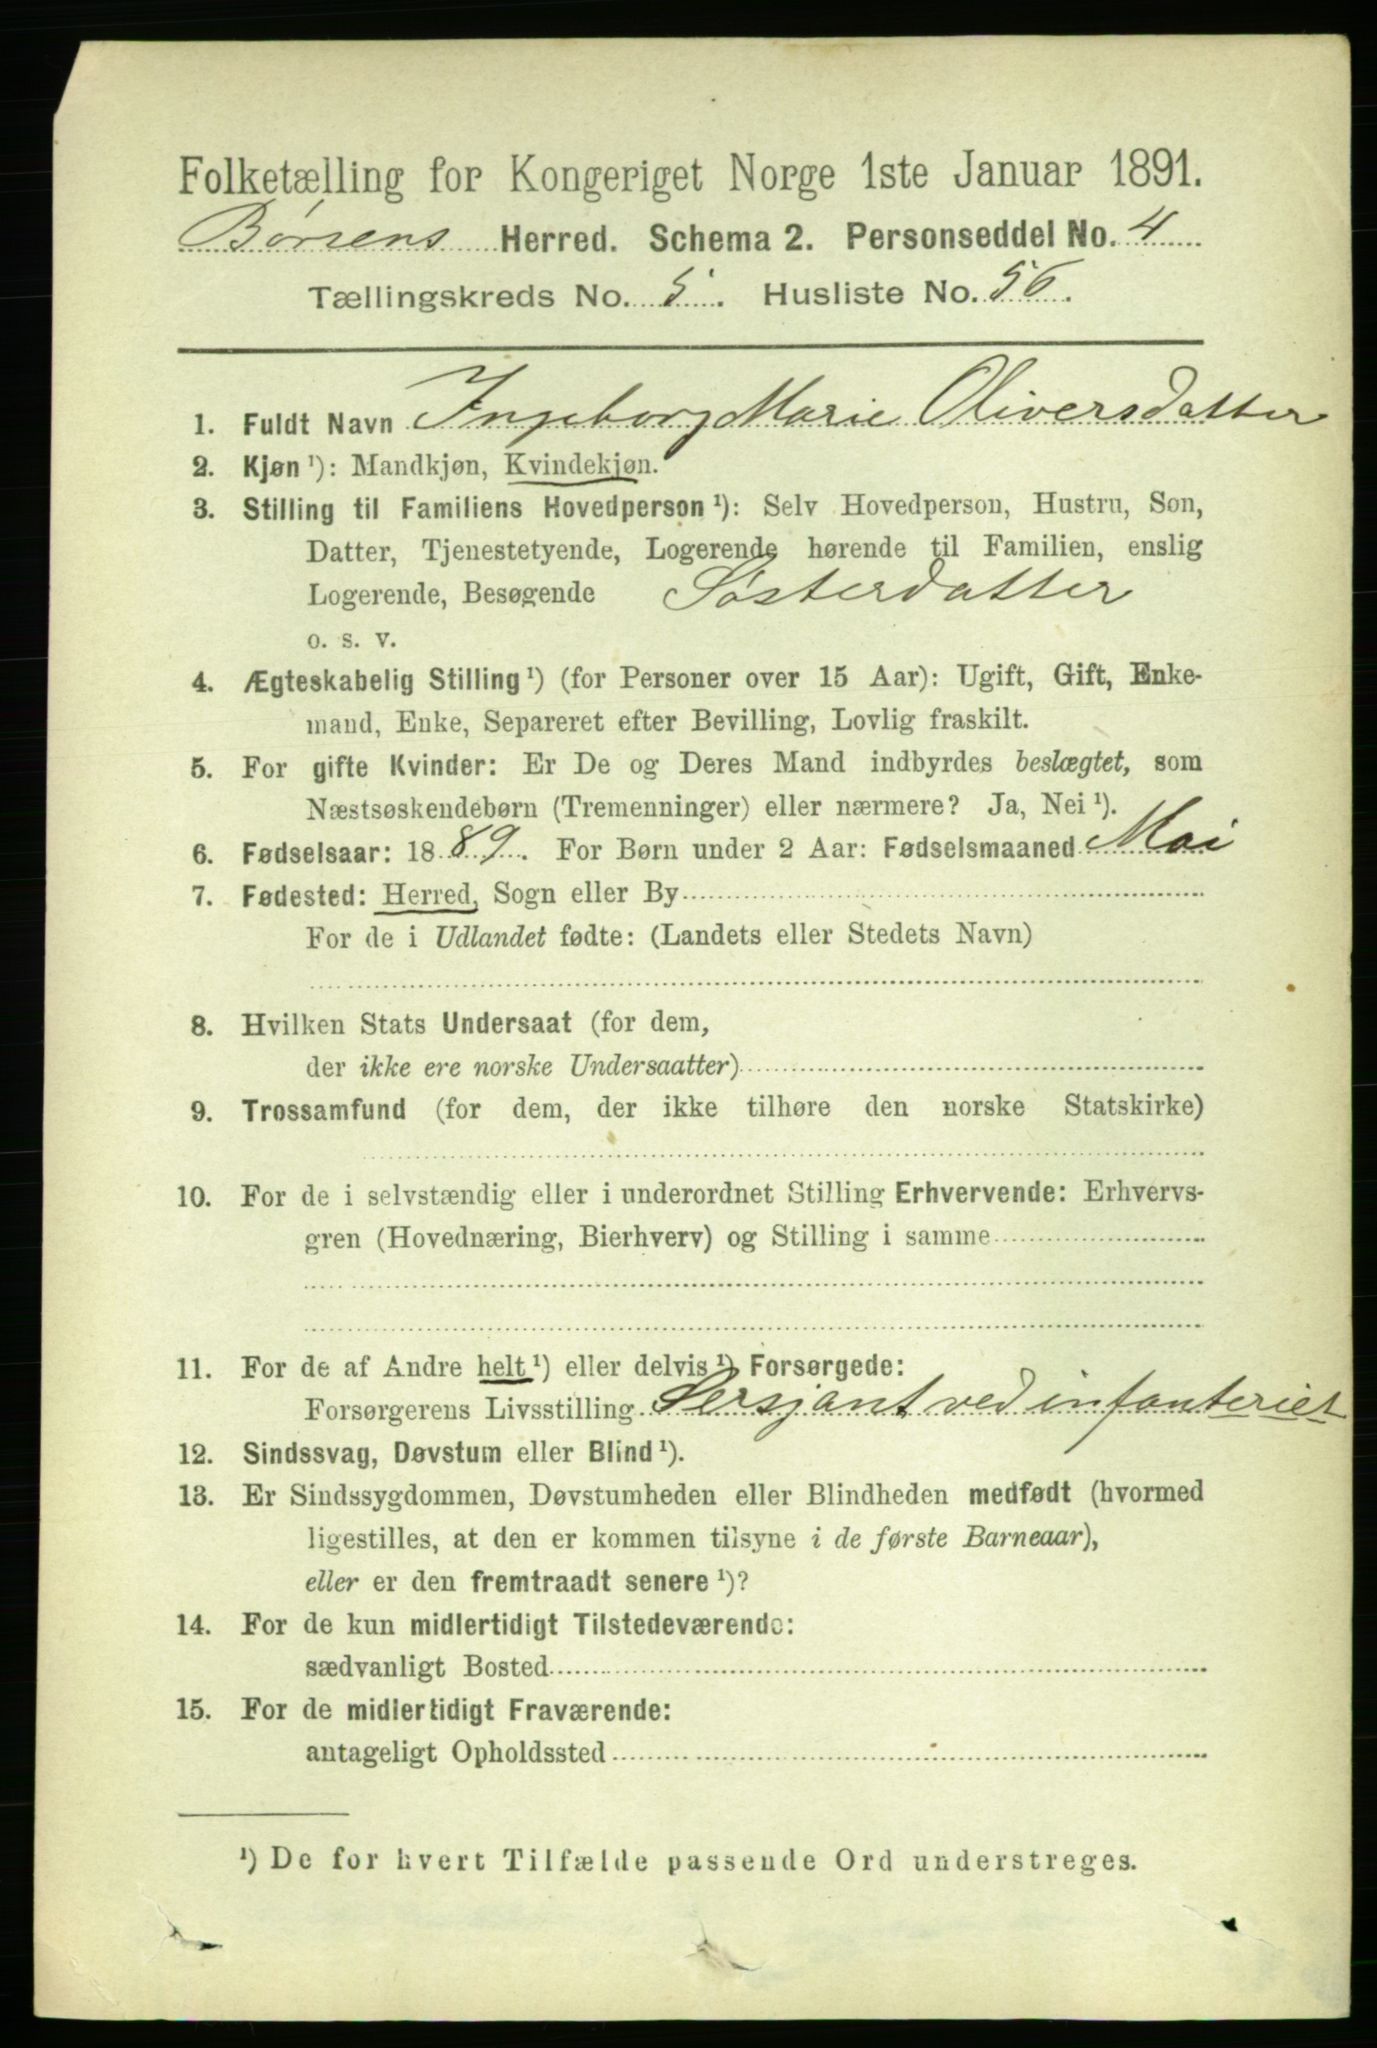 Folketælling for Kongeriget Norge 1ste Januar 1891.
Børsens Herred. Schema 2. Personseddel No. 4
Tællingskreds No. 5. Husliste No. 56.
1. Fuldt Navn Ingeborg Marie Oliversdatter
2. Kjøn ¹): Mandkjøn, Kvindekjøn.
3. Stilling til Familiens Hovedperson ¹): Selv Hovedperson, Hustru, Søn,
Datter, Tjenestetyende, Logerende hørende til Familien, enslig
Logerende, Besøgende Søsterdatter
o. s. v.
4. Ægteskabelig Stilling ¹) (for Personer over 15 Aar): Ugift, Gift, Enke-
mand, Enke, Separeret efter Bevilling, Lovlig fraskilt.
5. For gifte Kvinder: Er De og Deres Mand indbyrdes beslægtet, som
Næstsøskendebørn (Tremenninger) eller nærmere? Ja, Nei ¹).
6. Fødselsaar: 1889. For Børn under 2 Aar: Fødselsmaaned Mai
7. Fødested: Herred, Sogn eller By
For de i Udlandet fødte: (Landets eller Stedets Navn)
8. Hvilken Stats Undersaat (for dem,
der ikke ere norske Undersaatter)
9. Trossamfund (for dem, der ikke tilhøre den norske Statskirke)
10. For de i selvstændig eller i underordnet Stilling Erhvervende: Erhvervs-
gren (Hovednæring, Bierhverv) og Stilling i samme
11. For de af Andre helt ¹) eller delvis ¹) Forsørgede:
Forsørgerens Livsstilling Sersjant ved infanteriet
12. Sindssvag, Døvstum eller Blind ¹).
13. Er Sindssygdommen, Døvstumheden eller Blindheden medfødt (hvormed
ligestilles, at den er kommen tilsyne i de første Barneaar),
eller er den fremtraadt senere ¹)?
14. For de kun midlertidigt Tilstedeværende:
sædvanligt Bosted
15. For de midlertidigt Fraværende:
antageligt Opholdssted
¹) De for hvert Tilfælde passende Ord understreges.